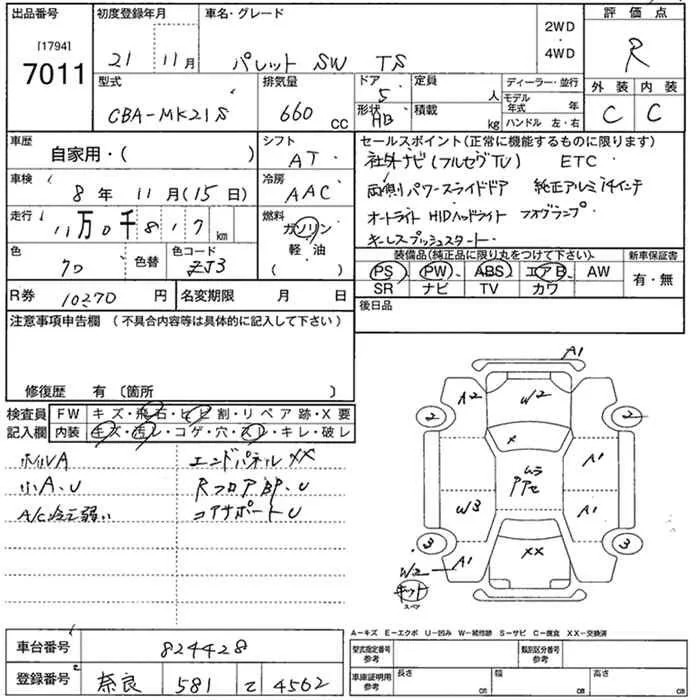 出品番号 初度登録年月 車名・グレード 2WD・4WD 評価点
[1794] 7011 21 11月 パレット SW TS R
型式 排気量 ドア 定員 ディーラー・並行 外装 内装
CBA-MK21S 660 cc 5 人 モデル年式 年 C C
形状 HB 積載 kg ハンドル 左・右
車歴 自家用・( ) シフト AT セールスポイント(正常に機能するものに限ります)
社外ナビ(フルセグTV) ETC
車検 8年 11月(15日) 冷房 AAC 両側パワースライドドア 純正アルミ14インチ
走行 11万0千817km 燃料 ガソリン・軽油 オートライト HIDヘッドライト フォグランプ
キーレスプッシュスタート
色 色替 色コード ZJ3 装備品(純正品に限り丸をつけて下さい) 新車保証書
PS PW ABS エアB AW 有・無
SR ナビ TV カワ
R券 10270円 名変期限 月 日 後日品
注意事項申告欄(不具合内容等は具体的に記入して下さい)
修復歴 有(箇所 )
検査員記入欄 FW キズ・飛石・ヒビ割・リペア跡・X要
内装 キズ・汚レ・コゲ・穴・スレ・キレ・破レ
エンドパネルXX
小A、U RフロアBP、U
A/C冷え弱い コアサポートU
A1
A2 W2
2 2
X A1
ムラ
W3 A1
3 3
XX
W2 A1 A1
キット
スペア
A-キズ E-エクボ U-凹み W-補修跡 S-サビ C-腐食 XX-交換済
車台番号 824428 型式指定番号 参考 類別区分番号 参考
登録番号 奈良 581 て 4562 車庫証明用 参考 長さ cm 幅 cm 高さ cm